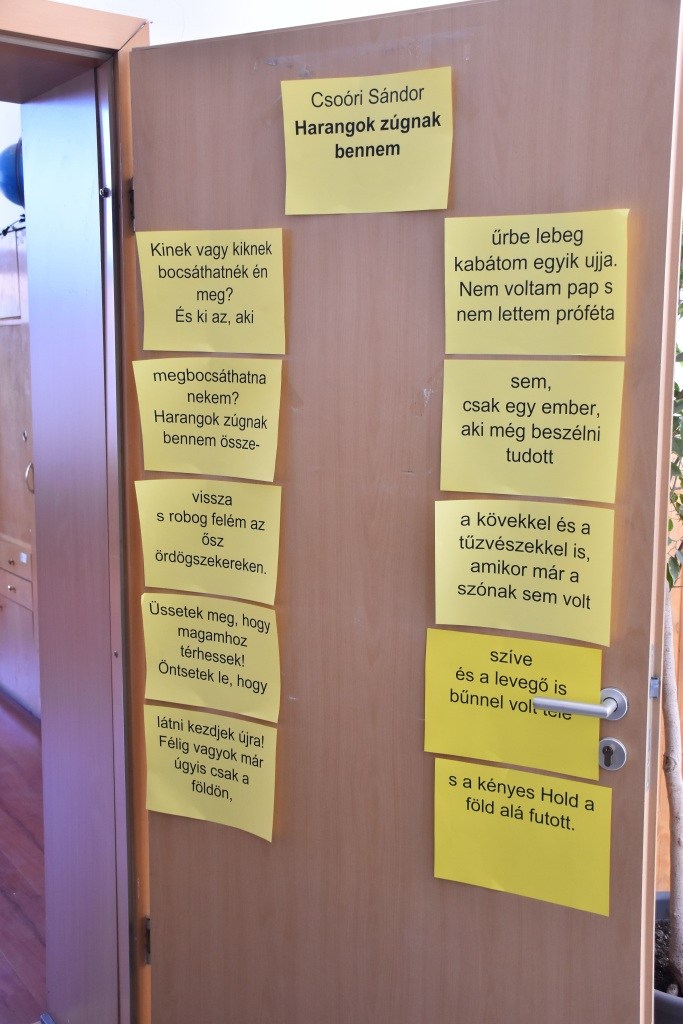 Csoóri Sándor
Harangok zúgnak
bennem
Kinek vagy kiknek
bocsáthatnék én
meg?
És ki az, aki
megbocsáthatna
nekem?
Harangok zúgnak
bennem össze-
vissza
s robog felém az
ősz
ördögszekereken.
Üssetek meg, hogy
magamhoz
térhessek!
Öntsetek le, hogy
látni kezdjek újra!
Félig vagyok már
úgyis csak a
földön,
űrbe lebeg
kabátom egyik ujja.
Nem voltam pap s
nem lettem próféta
sem,
csak egy ember,
aki még beszélni
tudott
a kövekkel és a
tűzvészekkel is,
amikor már a
szónak sem volt
szíve
és a levegő is
bűnnel volt tele
s a kényes Hold a
föld alá futott.